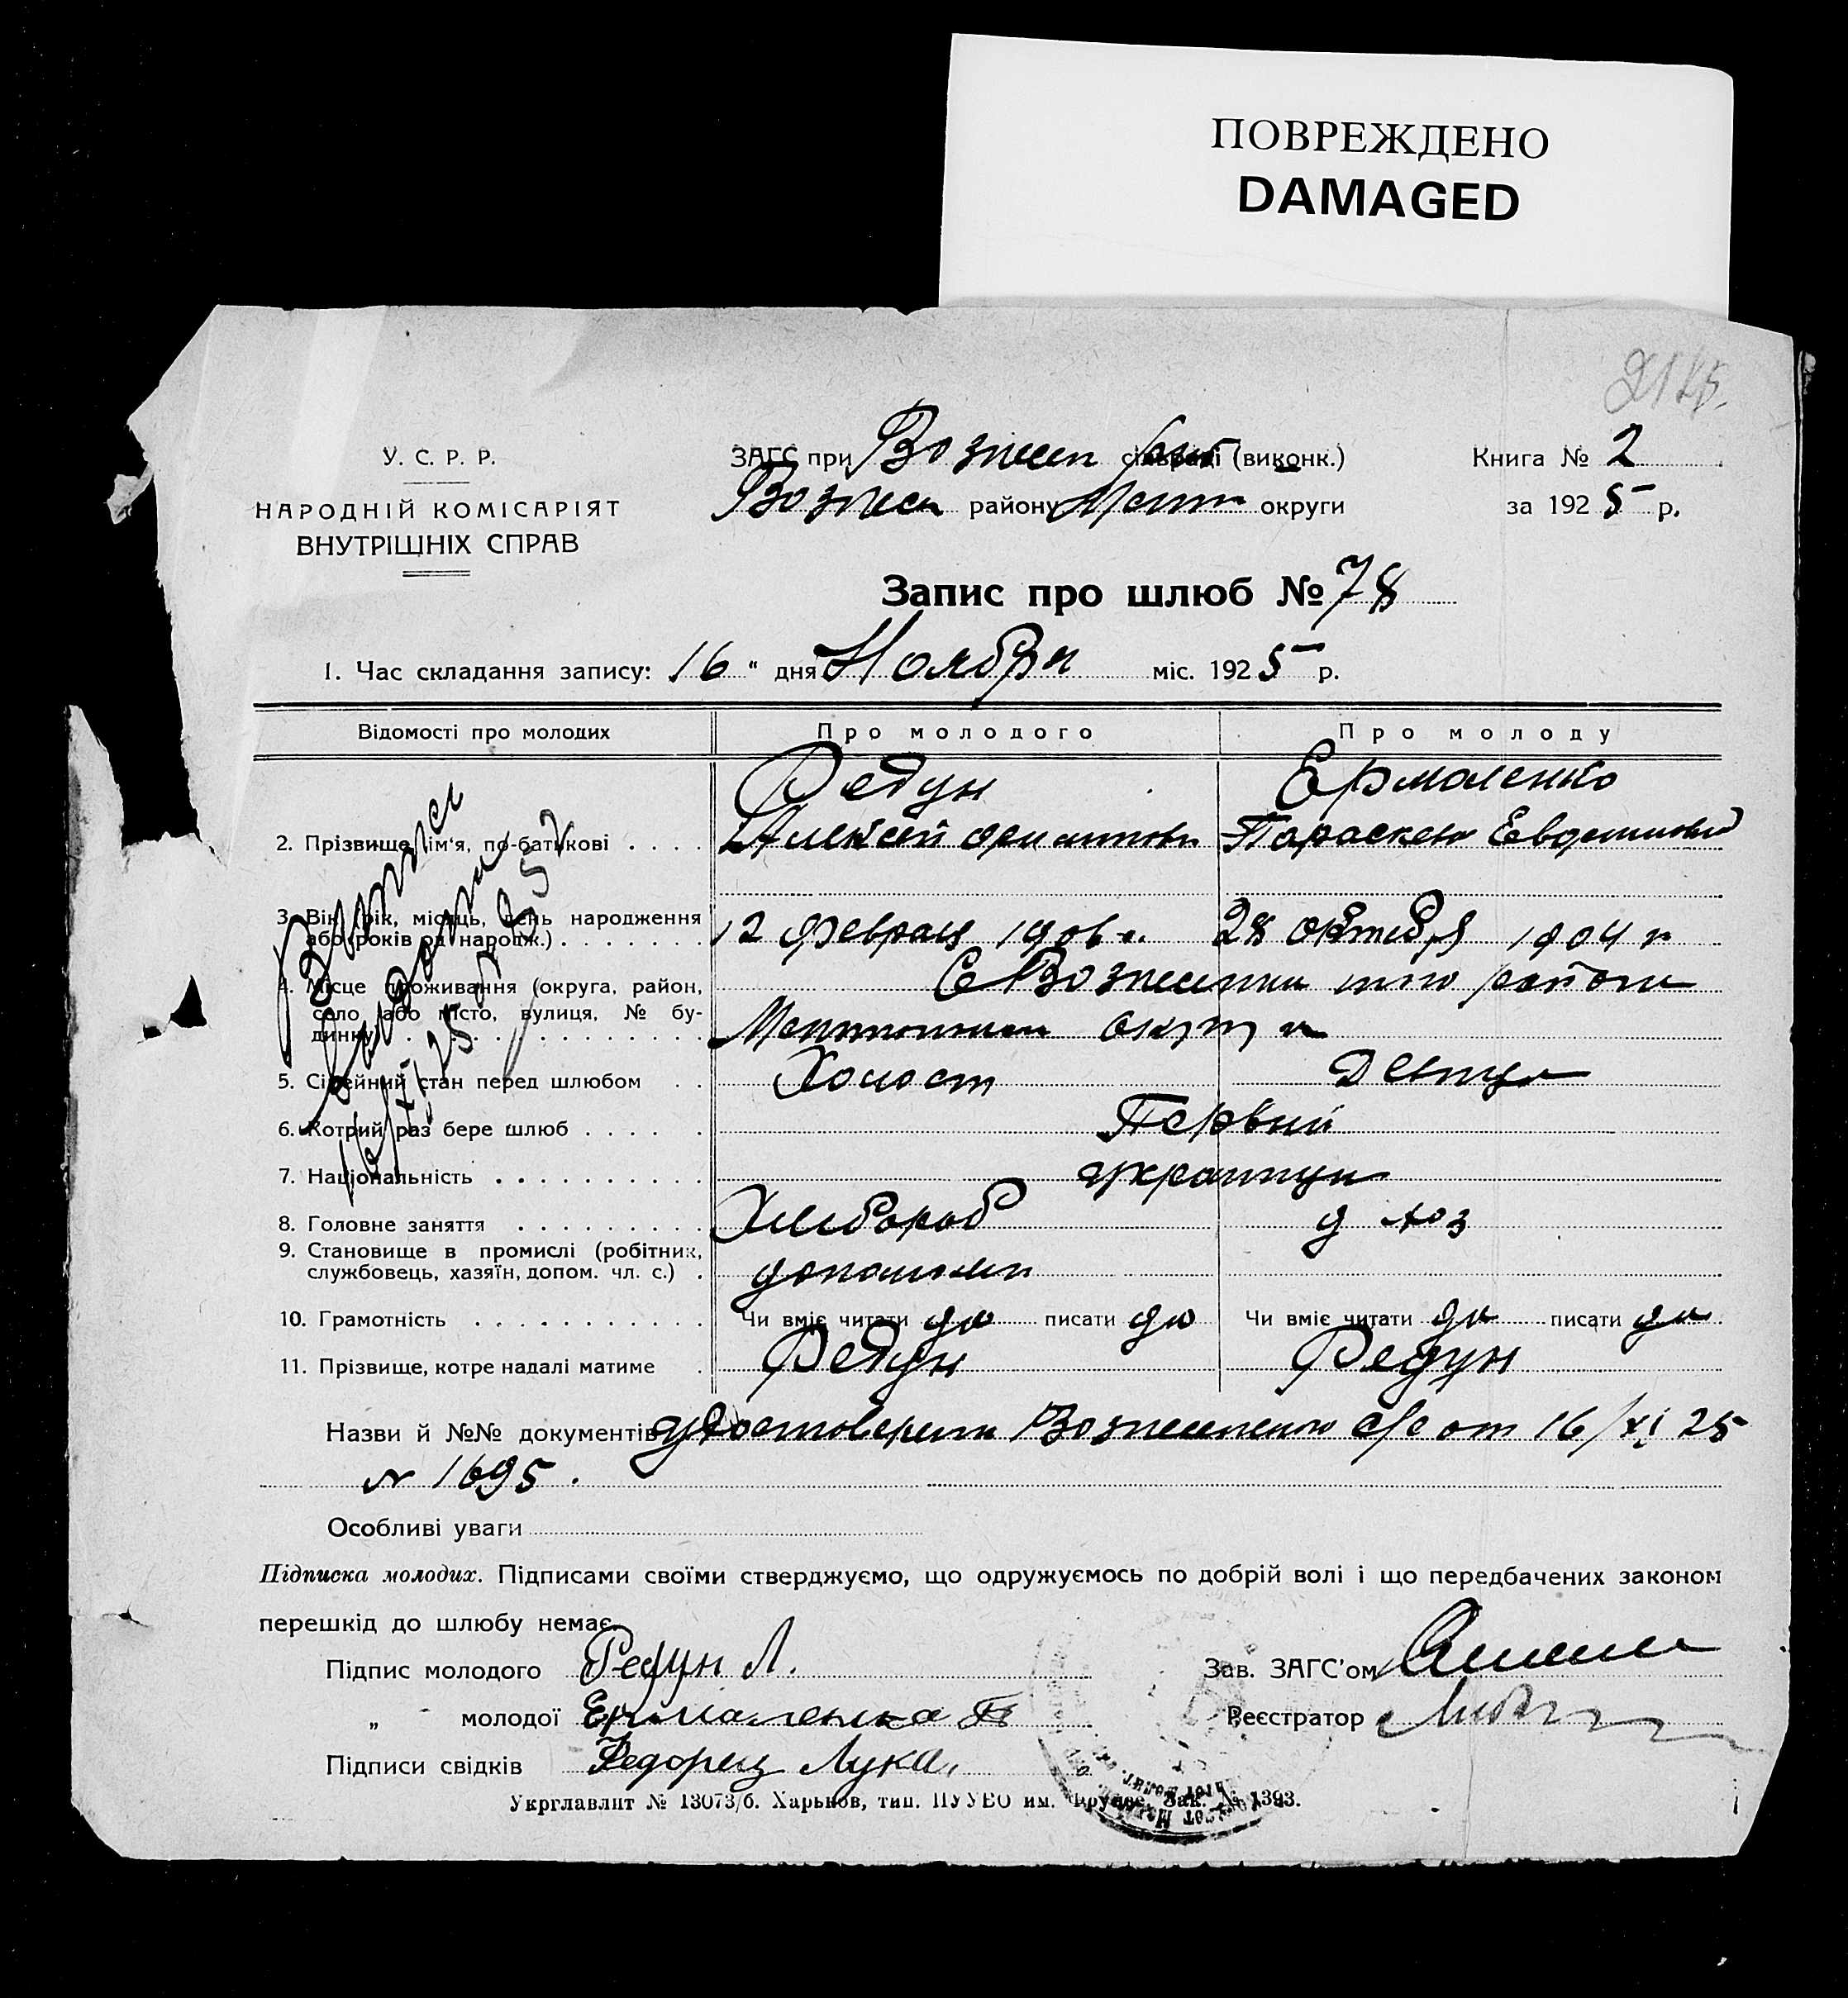 ПОВРЕЖДЕНО
DAMAGED
У. С. Р. Р.
НАРОДНІЙ КОМІСАРІЯТ
ВНУТРІШНІХ СПРАВ
ЗАГС при Вознесен сільраді (виконк.)
Вознесен району округи
Книга № 2
за 1925 р.
Запис про шлюб № 78
1. Час складання запису: 16 " дня Ноября міс. 1925 р.
Відомості про молодих
Про молодого
Про молоду
2. Прізвище, ім'я, по-батькові
Редун
Алексей
Ермоленко
Параскева
3. Вік (рік, місяць, день народження або років од народж.)
12 февраля 1906 г.
28 октября 1904 г
4. Місце проживання (округа, район, село або місто, вулиця, № будинку)
С Вознесенки того района
округи
5. Сімейний стан перед шлюбом
Холост
Девица
6. Котрий раз бере шлюб
Первий
7. Національність
украинцы
8. Головне заняття
Хлебороб
д хоз
9. Становище в промислі (робітник, службовець, хазяїн, допом. чл. с.)
10. Грамотність
Чи вміє читати да писати да
Чи вміє читати да писати да
11. Прізвище, котре надалі матиме
Редун
Редун
Назви й №№ документів удостоверен Вознесенского с/с от 16/XI 25
№ 1695.
Особливі уваги
Підписка молодих. Підписами своїми стверджуємо, що одружуємось по добрій волі і що передбачених законом
перешкід до шлюбу немає.
Підпис молодого Редун А.
" молодої Ермоленко П
Підписи свідків Федорец Лука.
Зав. ЗАГС'ом
Реєстратор
Укрглавліт № 13073/б. Харьков, тип. ПУУВО им. Фрунзе. Зак. № 1393.